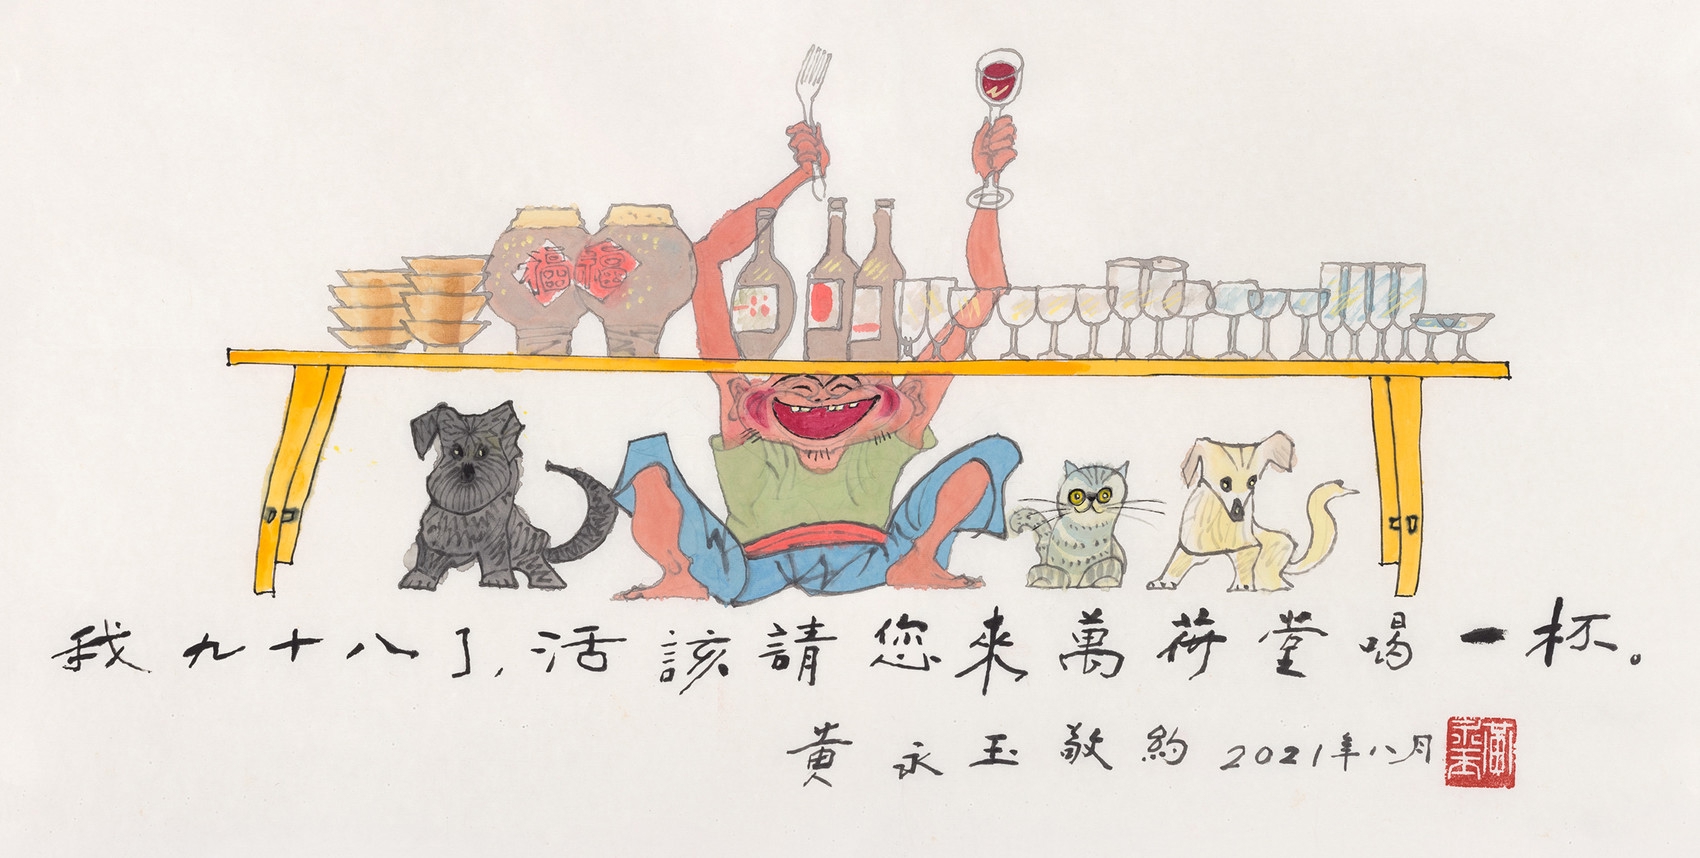 福 福
我九十八了,活該請您來萬荷堂喝一杯。
黃永玉敬約 2021年八月
黃永玉